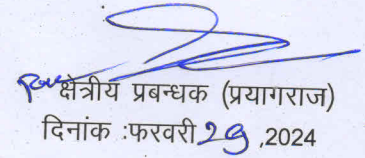 क्षेत्रीय प्रबन्धक (प्रयागराज)
दिनांक :फरवरी 29 ,2024